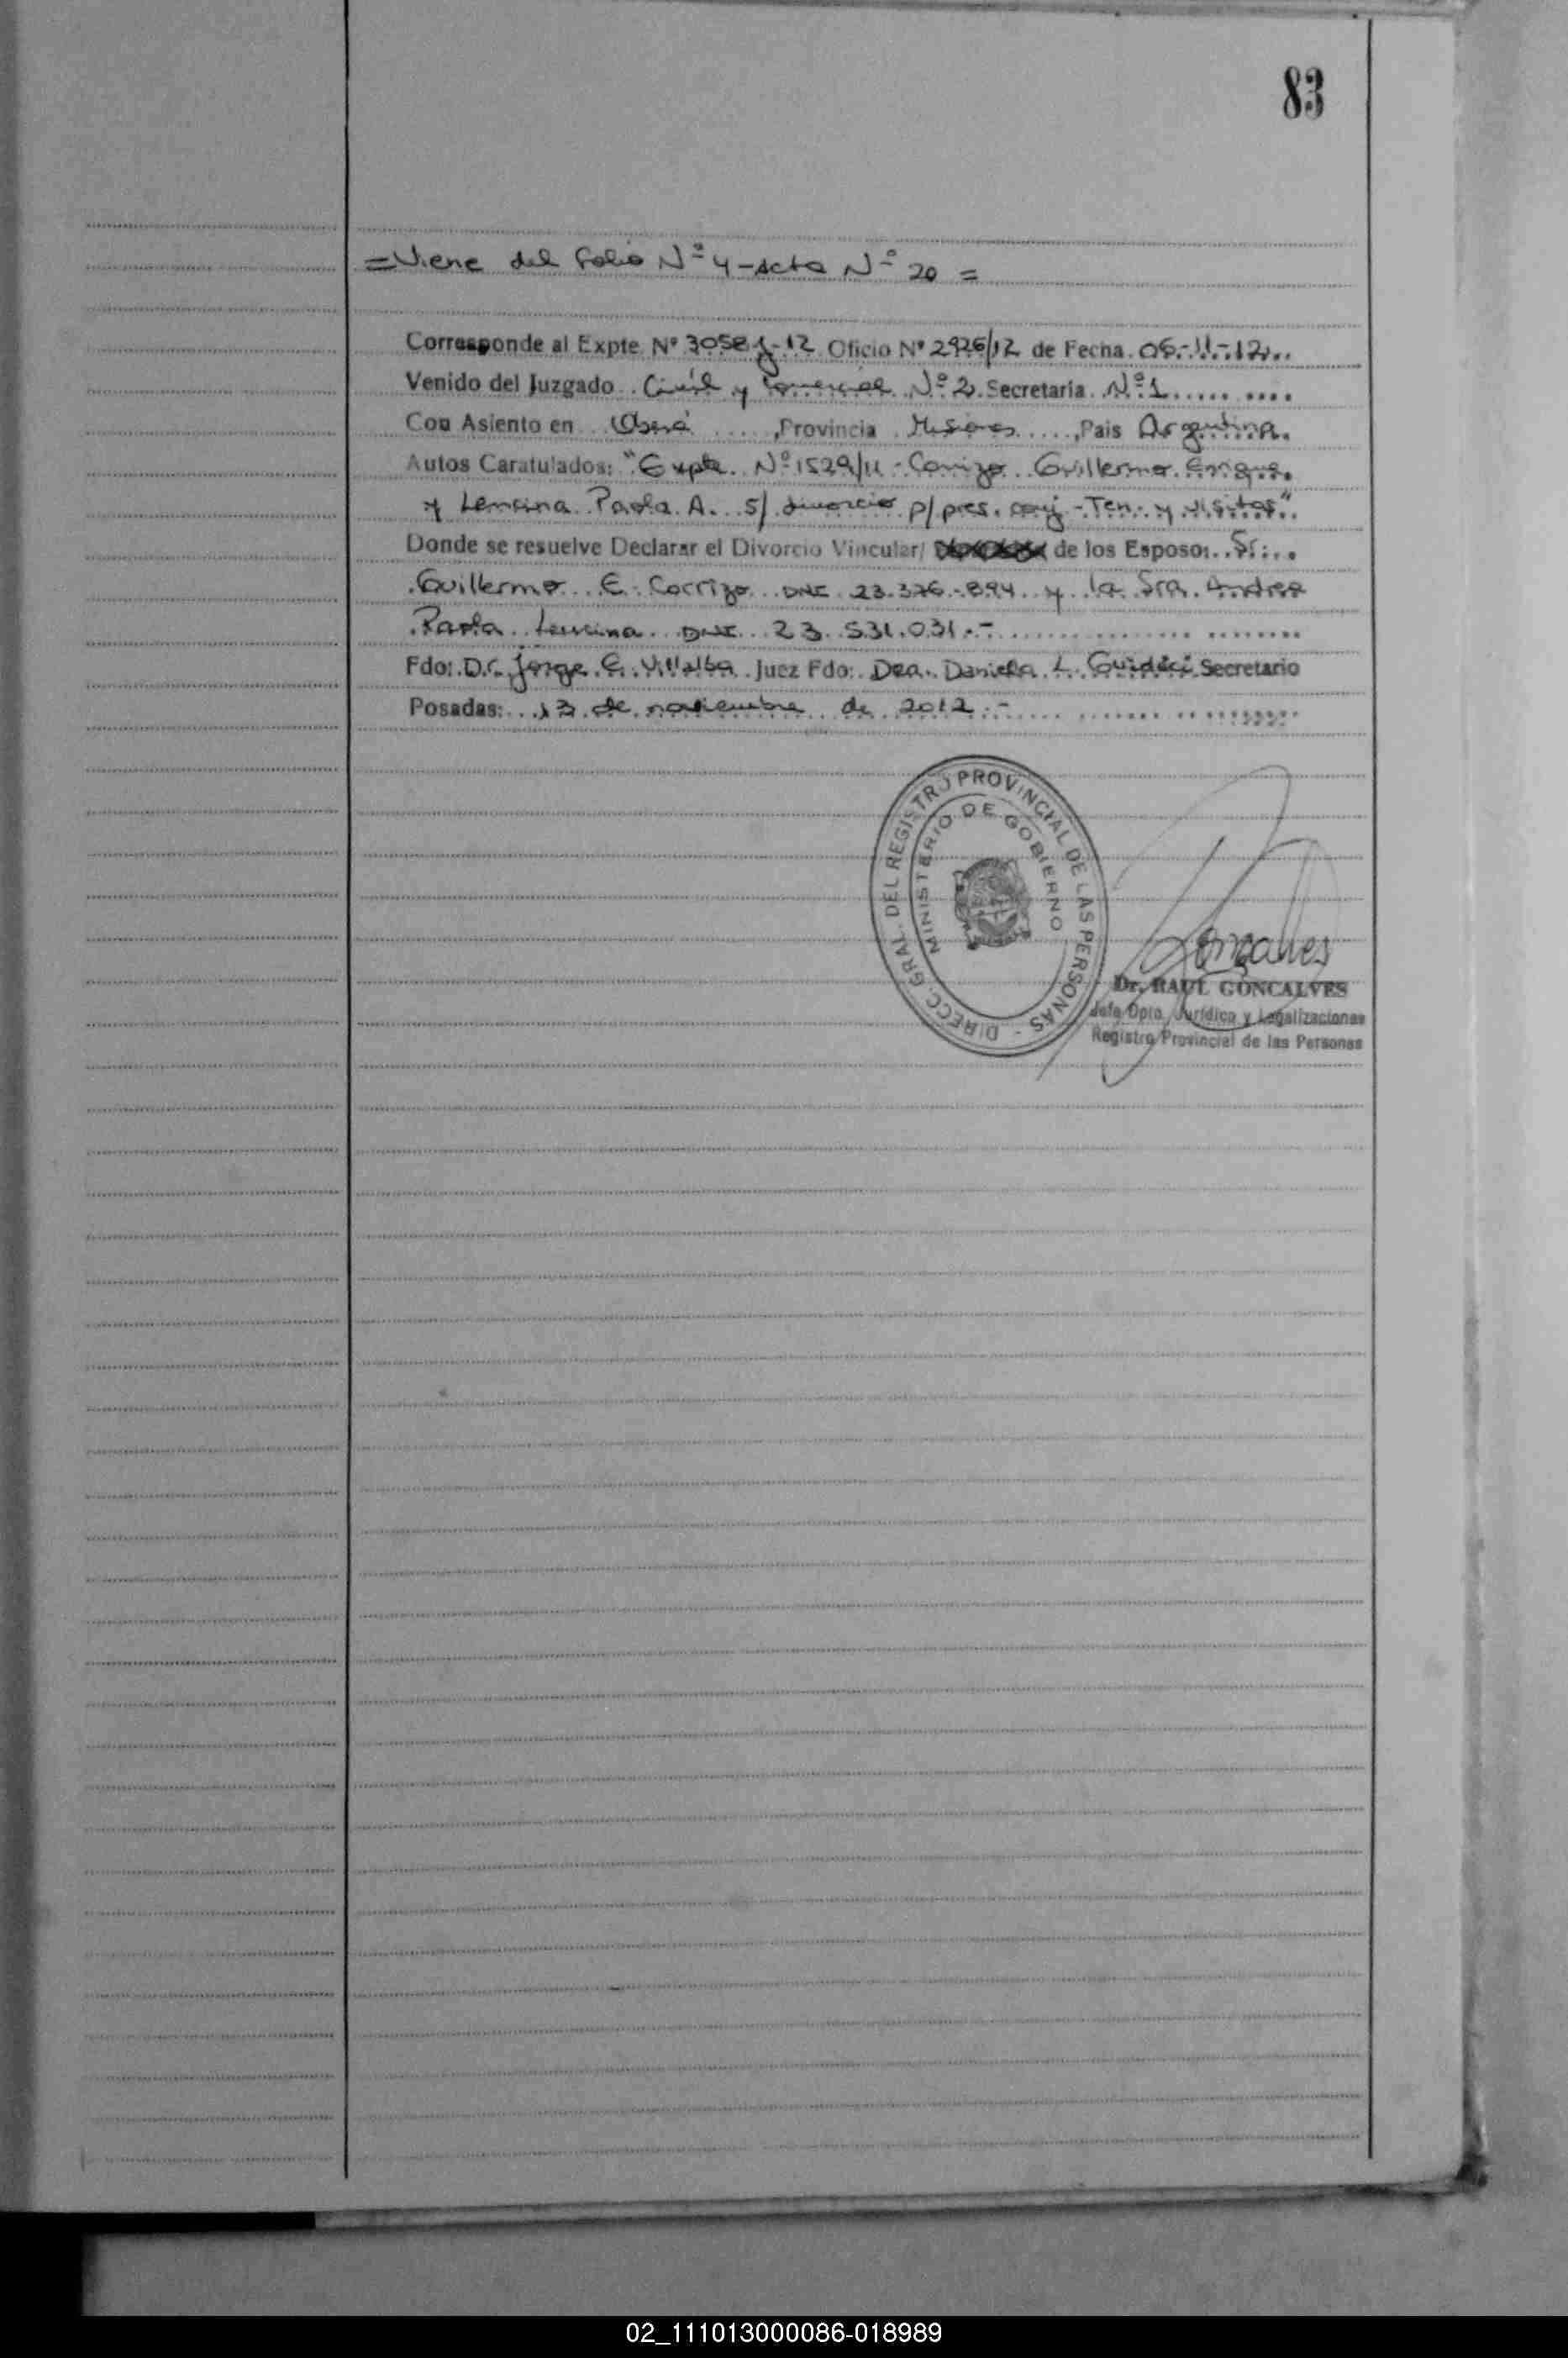 83
=Viene del folio Nº 4-Acta Nº 20 =
Corresponde al Expte. Nº 3058 J-12 Oficio Nº 2926/12 de Fecha. 06.-11-.12..
Venido del Juzgado.. Civil y Comercial Nº 2. Secretaría.. Nº 1
Con Asiento en.. Oberá ....,Provincia. Misiones.....,Pais Argentina.
Autos Caratulados: "Expte. Nº 1529/11 - Corrizo Guillermo Enrique
y Lencina Paola A. S/ divorcio p/ pres. conj - Ten. y visitas"
Donde se resuelve Declarar el Divorcio Vincular/ de los Esposo:.. Sr:..
Guillermo E. Corrizo DNI 23.376.894 y la Sra. Andrea
Paola Lencina DNI 23.531.031.-
Fdo:. Dr. Jorge E. Villalba. Juez Fdo:. Dra. Daniela L. Secretario
Posadas:... 13 de noviembre de 2012.-
DIRECC. GRAL. DEL REGISTRO PROVINCIAL DE LAS PERSONAS -
MINISTERIO DE GOBIERNO
Gonzalves
Dr. RAUL GONCALVES
Jefe Dpto. Jurídico y Legalizaciones
Registro Provincial de las Personas
02_111013000086-018989